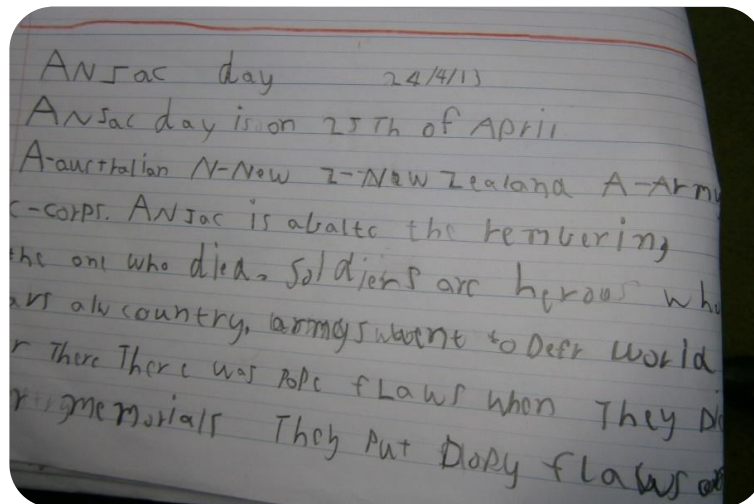 ANSac day 24/4/13
ANSac day is on 25Th of April
A-australian N-New Z-New Zealand A-Army
c-corps. ANSac is abalte the rembering
the one who died. Soldiers are herous who
country, armys went to Defr World
There There was pope fLaws when They
memorials They put popy flaws